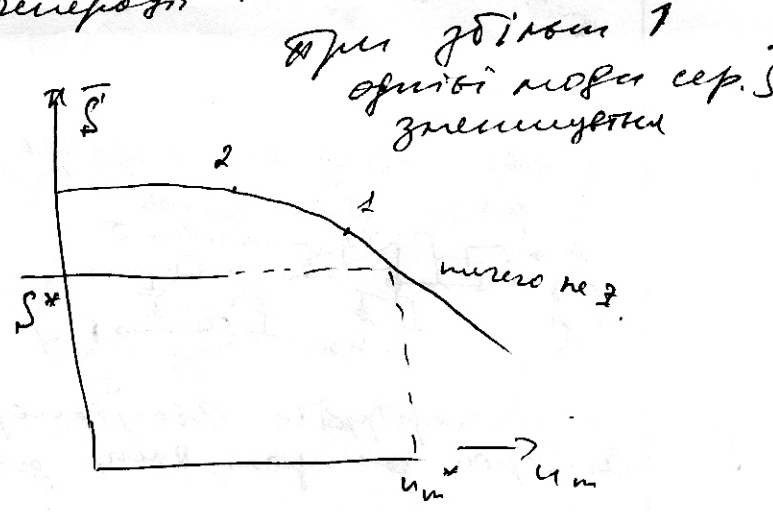 генерації
При збільш 1
одніеї моди сер. S
зменшується
S̄
2
1
S*
ничего не
uₘ*
uₘ